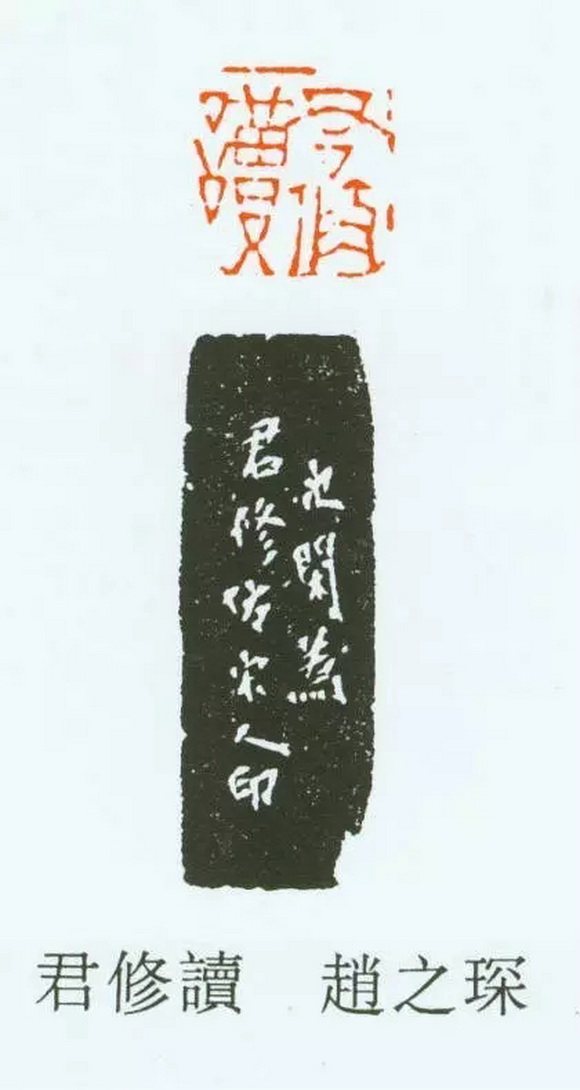 君修
讀
次閑為
君修仿宋人印
君修讀　趙之琛